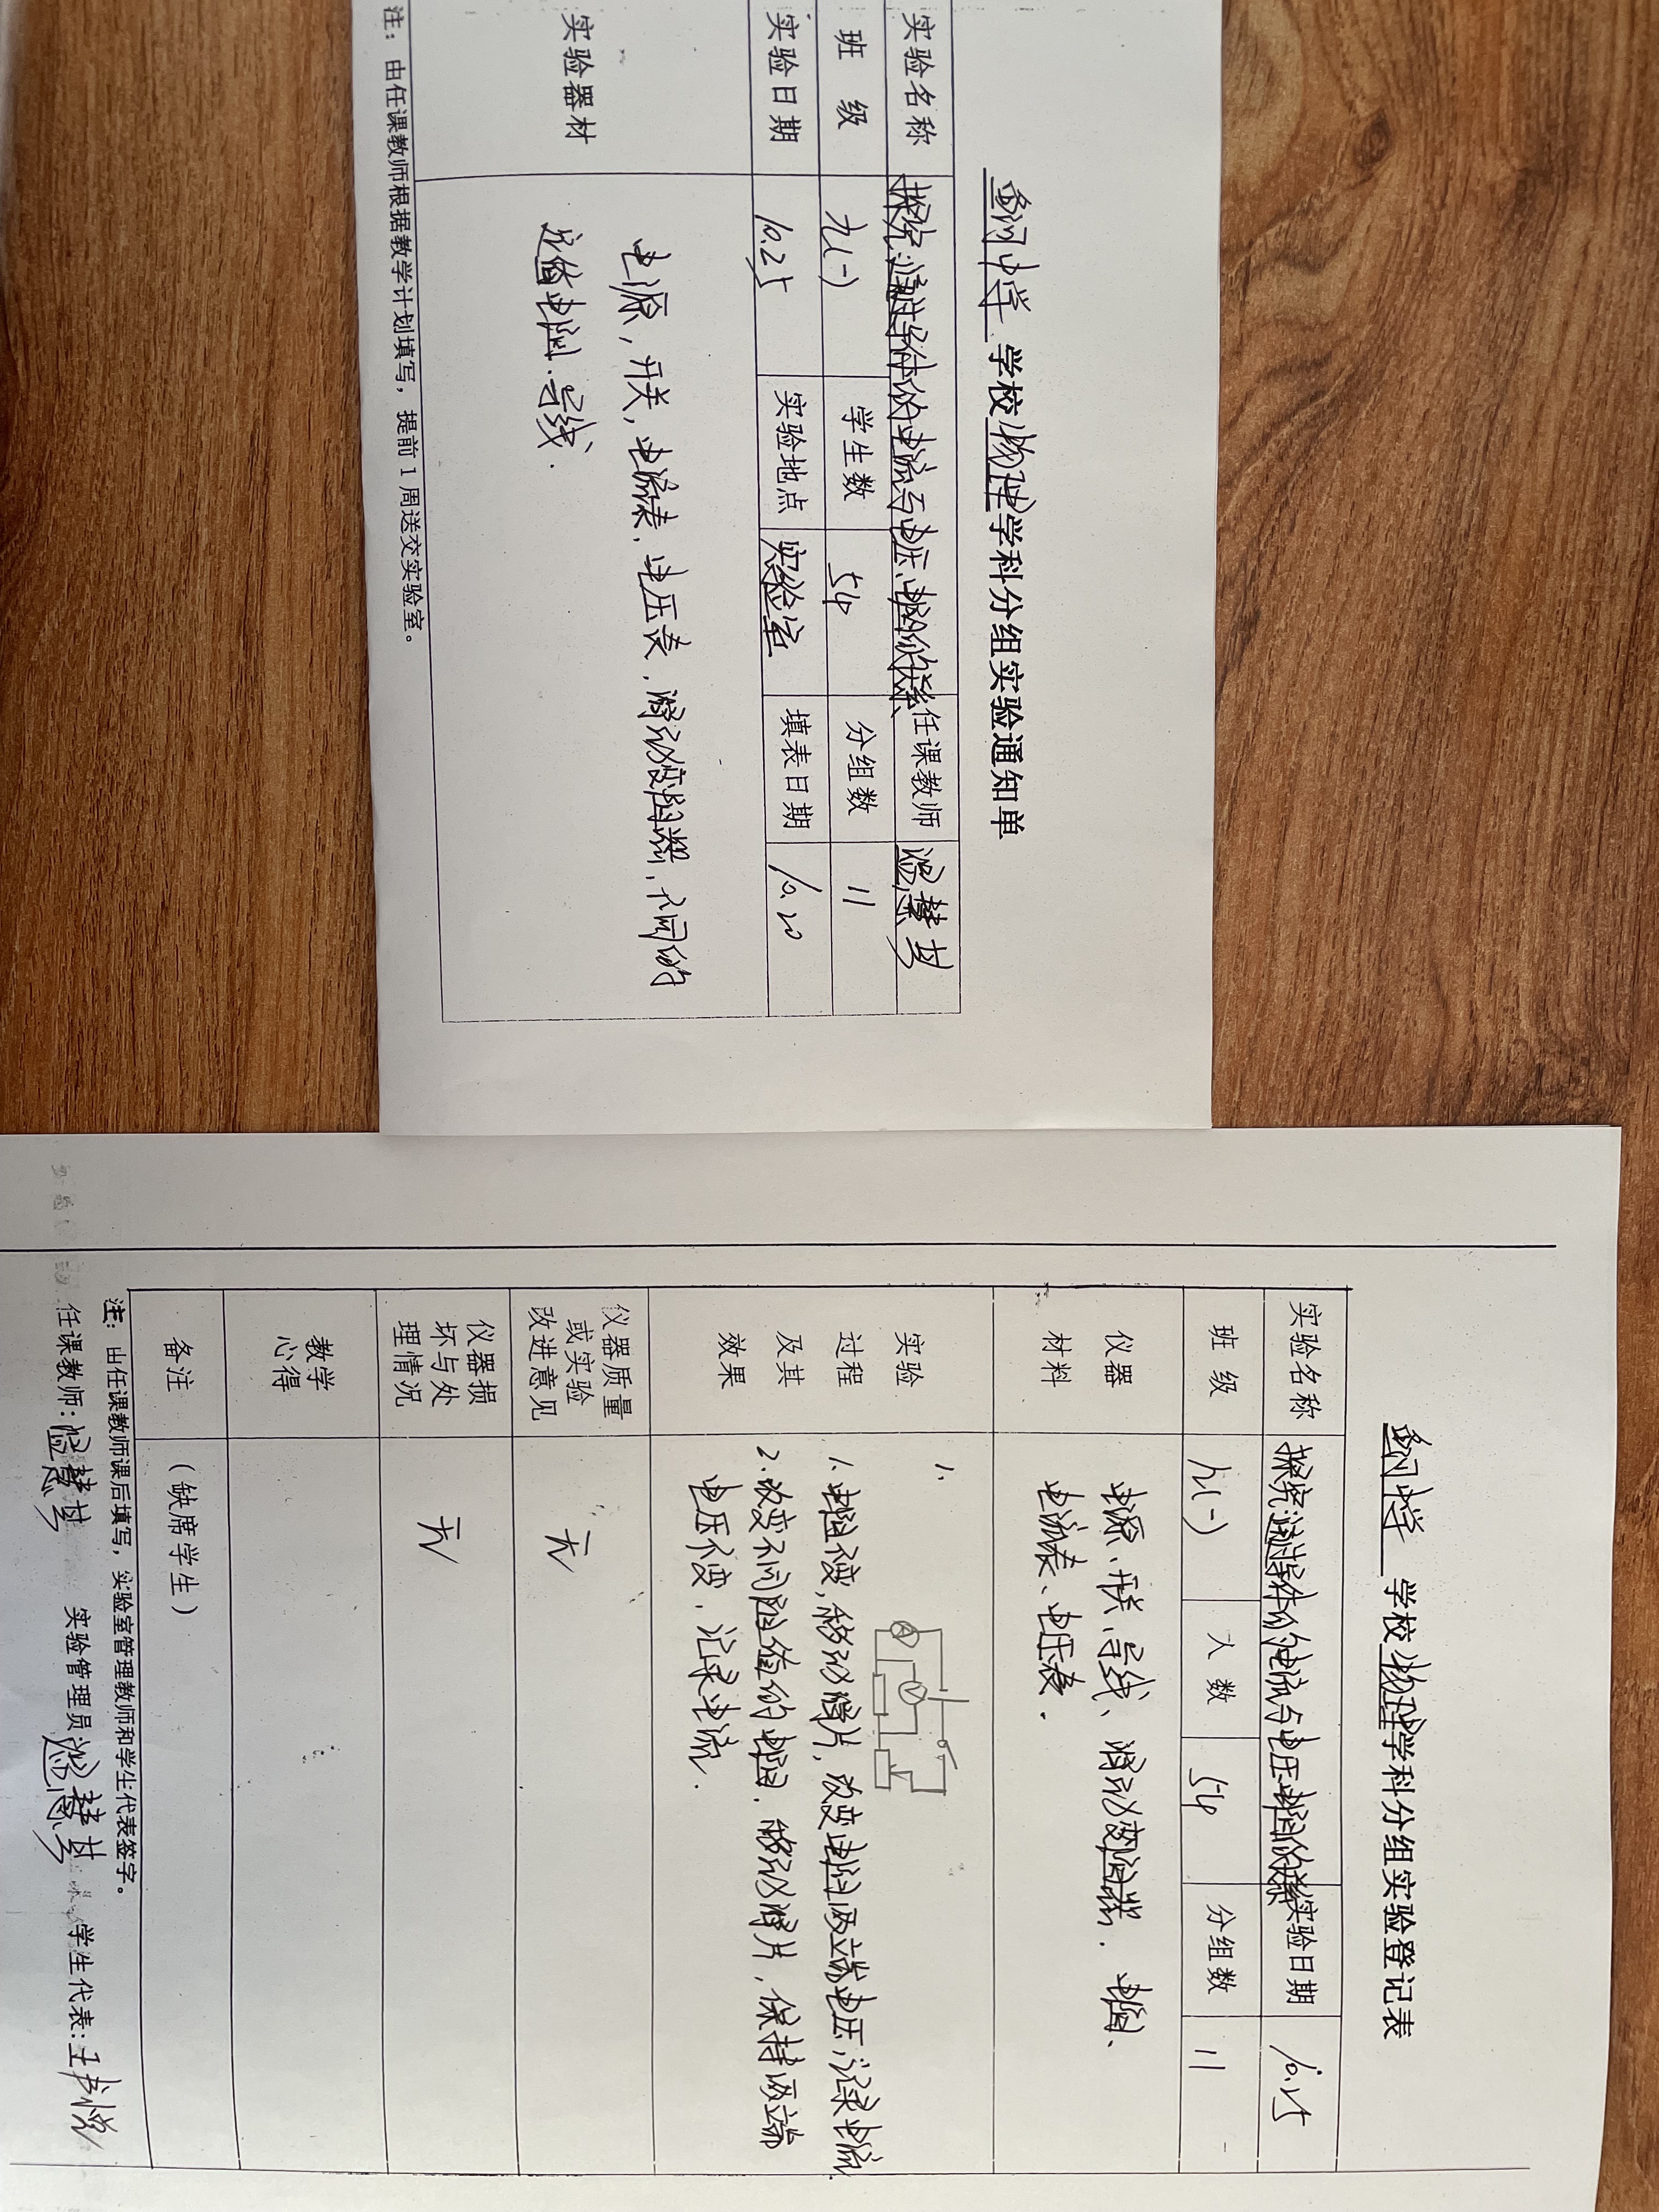 中学 学校物理学科分组实验通知单
实验名称 探究:通过导体的电流与电压、电阻的关系 任课教师
班 级 九(一) 学生数 54 分组数 11
实验日期 10.25 实验地点 实验室 填表日期 10.20
实验器材 电源,开关,电流表,电压表,滑动变阻器,不同的
定值电阻.导线.
注:由任课教师根据教学计划填写,提前1周送交实验室。
中学 学校物理学科分组实验登记表
实验名称 探究:通过导体的电流与电压、电阻的关系 实验日期 10.25
班 级 九(一) 人 数 54 分组数 11
仪器
材料
电源、开关、导线、滑动变阻器.电阻、
电流表、电压表.
实验
过程
及其
效果
1.
A V
1.电阻不变,移动滑片,改变电阻两端电压,记录电流.
2.改变不同阻值的电阻.移动滑片,保持两端
电压不变,记录电流.
仪器质量
或实验
改进意见
无
仪器损
坏与处
理情况
无
教学
心得
备注 (缺席学生)
注:由任课教师课后填写,实验室管理教师和学生代表签字。
任课教师: 实验管理员: 学生代表: